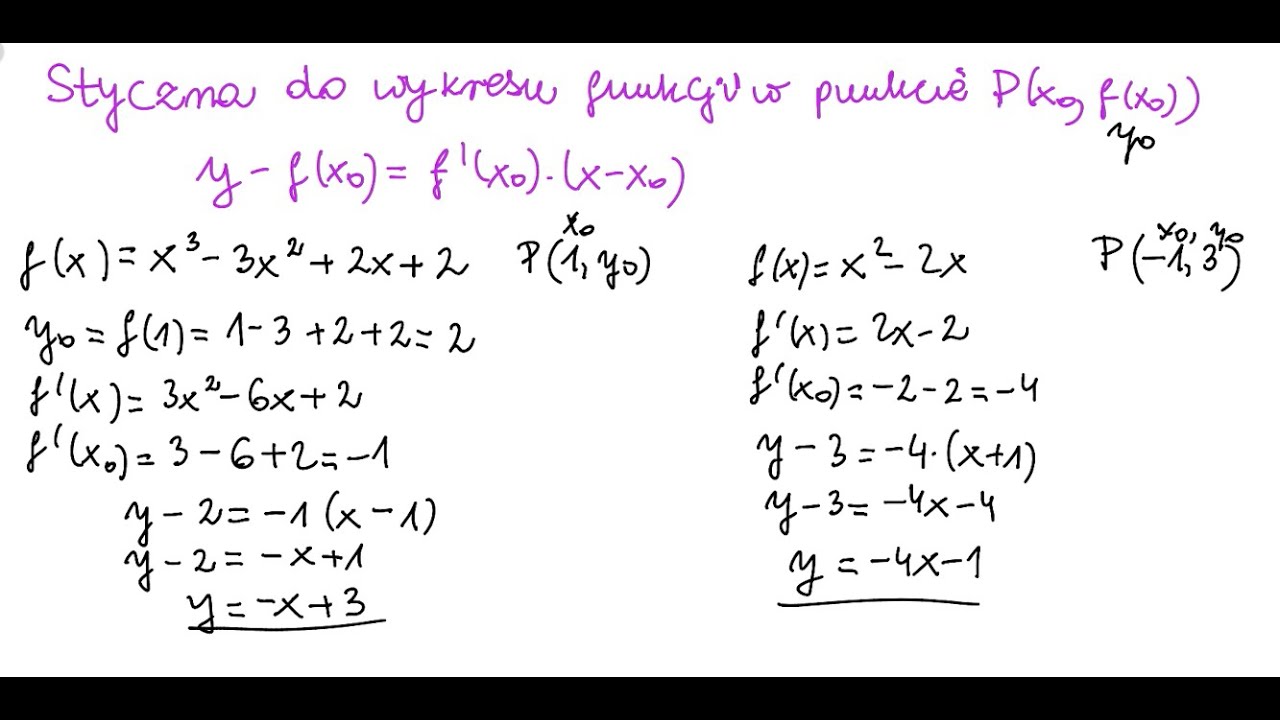 Styczna do wykresu funkcji w punkcie P(x₀, f(x₀))
y₀
y - f(x₀) = f'(x₀)·(x-x₀)
x₀
f(x) = x³ - 3x² + 2x + 2 P(1, y₀)
y₀ = f(1) = 1 - 3 + 2 + 2 = 2
f'(x) = 3x² - 6x + 2
f'(x₀) = 3 - 6 + 2 = -1
y - 2 = -1 (x - 1)
y - 2 = -x + 1
y = -x + 3
x₀, y₀
f(x) = x² - 2x P(-1, 3)
f'(x) = 2x - 2
f'(x₀) = -2 - 2 = -4
y - 3 = -4·(x+1)
y - 3 = -4x - 4
y = -4x - 1